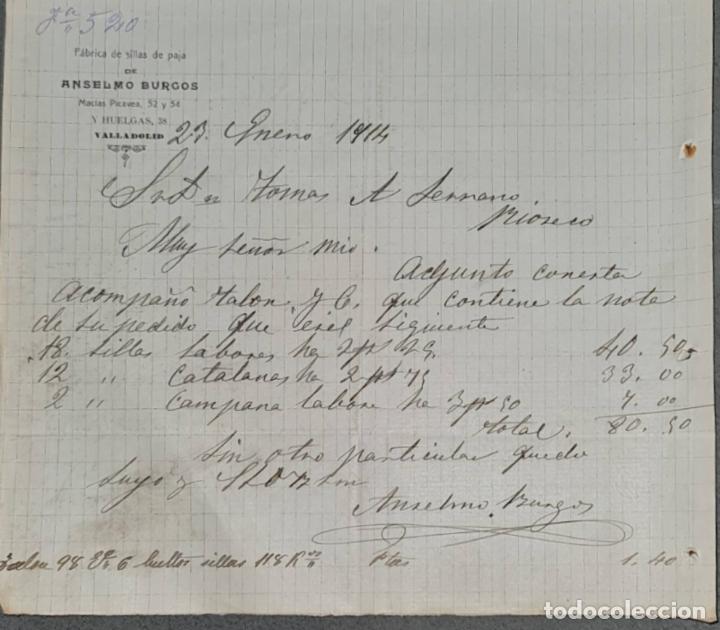 520
Fábrica de sillas de paja
DE
ANSELMO BURGOS
Macías Picavea, 52 y 54
Y HUELGAS, 38
VALLADOLID
23. Enero 1914
Tomas A Serrano
Rioseco
Muy Señor mio.
Adjunto conesta
acompaño talon, y C. que contiene la nota
de su pedido, que es el siguiente
18. sillas labores ha 2 pt 25. 40.50
12 " Catalanas ha 2 pt 75 33.00
2 " Campana labore ha 3 pt 50 7.00
total. 80.50
Sin otro particular quedo
suyo
Anselmo Burgos
talon 98 6 bultos sillas 118 K Ptas 1.40
todocoleccion